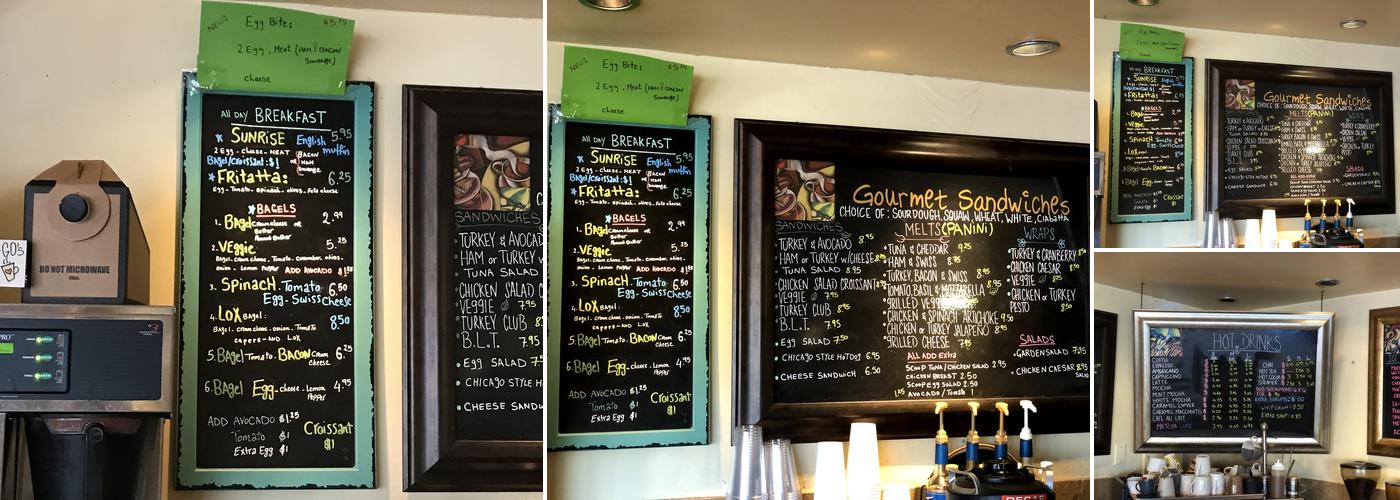 NEW! Egg Bite: $5.25
2 Egg, Meat (HAM BACON
Sausage)
cheese
All DAY BREAKFAST
SUNRISE English 5.95
muffin
2 Egg - cheese - MEAT
BACON
or HAM
Sausage
Bagel/Croissant: $1
FRitatta: 6.25
Egg - Tomato - spinach - olives - Feta cheese
BAGELS
1. Bagel cream cheese or 2.99
Butter
Peanut Butter
2. VEggie 5.25
Bagel. cream cheese. Tomato. cucumber. olives.
onion. Lemon Pepper ADD AVOCADO
3. SpinacH. Tomato 6.50
Egg - Swiss Cheese
4. LOX Bagel: 8.50
Bagel. cream cheese. onion. Tomato
capers - AND LOX
5. Bagel Tomato. BACON Cream 6.25
cheese
6. Bagel Egg - cheese. Lemon 4.95
Pepper
ADD AVOCADO $1.25
Tomato $1
Extra Egg $1
Croissant
$1
DO NOT MICROWAVE
Gourmet Sandwiches
CHOICE OF: SOURDOUGH, SQUAW, WHEAT, WHITE, Ciabatta
SANDWICHES
TURKEY & AVOCADO 8.95
HAM or TURKEY w/CHEESE 8.95
TUNA SALAD 8.95
CHICKEN SALAD CROISSANT
VEGGIE 7.95
TURKEY CLUB 8.95
B.L.T. 7.95
Egg SALAD 7.50
CHICAGO STYLE HOTDOG 6.95
CHEESE SANDWICH 6.50
MELTS (PANiNi)
TUNA & CHEDDAR 9.25
HAM & SWISS 8.95
TURKEY, BACON & SWISS 8.95
TOMATO BASIL & MOZZARELLA
GRILLED VEGGIE
CHICKEN & SPINACH ARTICHOKE 9.50
CHICKEN or TURKEY JALAPEÑO 8.95
GRILLED CHEESE 7.95
ALL ADD Extra
SCOOP TUNA/CHICKEN SALAD 2.95
CHICKEN BREAST 2.50
SCOOP EGG SALAD 2.50
AVOCADO / Tomato 1
WRAPS
TURKEY & CRANBERRY
CHICKEN CAESAR
VEGGIE
CHICKEN or TURKEY
PESTO 8.50
SALADS
GARDEN SALAD 7.95
CHICKEN CAESAR
SALAD
DECAF
HOT DRINKS
COFFEE
ESPRESSO
AMERICANO
CAPPUCCINO
LATTE
MOCHA
MINT MOCHA
WHITE MOCHA
CARAMEL LAVER
CARAMEL MACCHIATO
CAFE AU LAIT
MATCHA
CHAI
HOT TEA
HOT COCOA
STEAMER